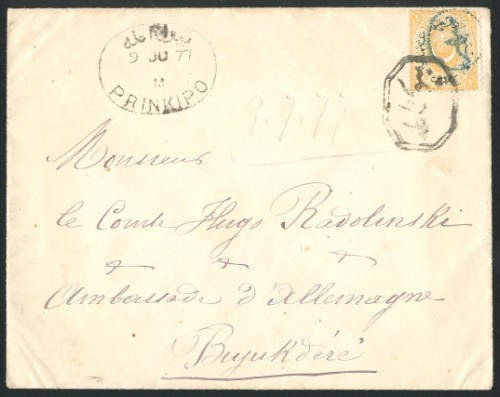 9 JU 77
M
PRINKIPO
9.7.77
Monsieur
le Comte Hugo Radolinski
Ambassade d'Allemagne
Buyukdéré